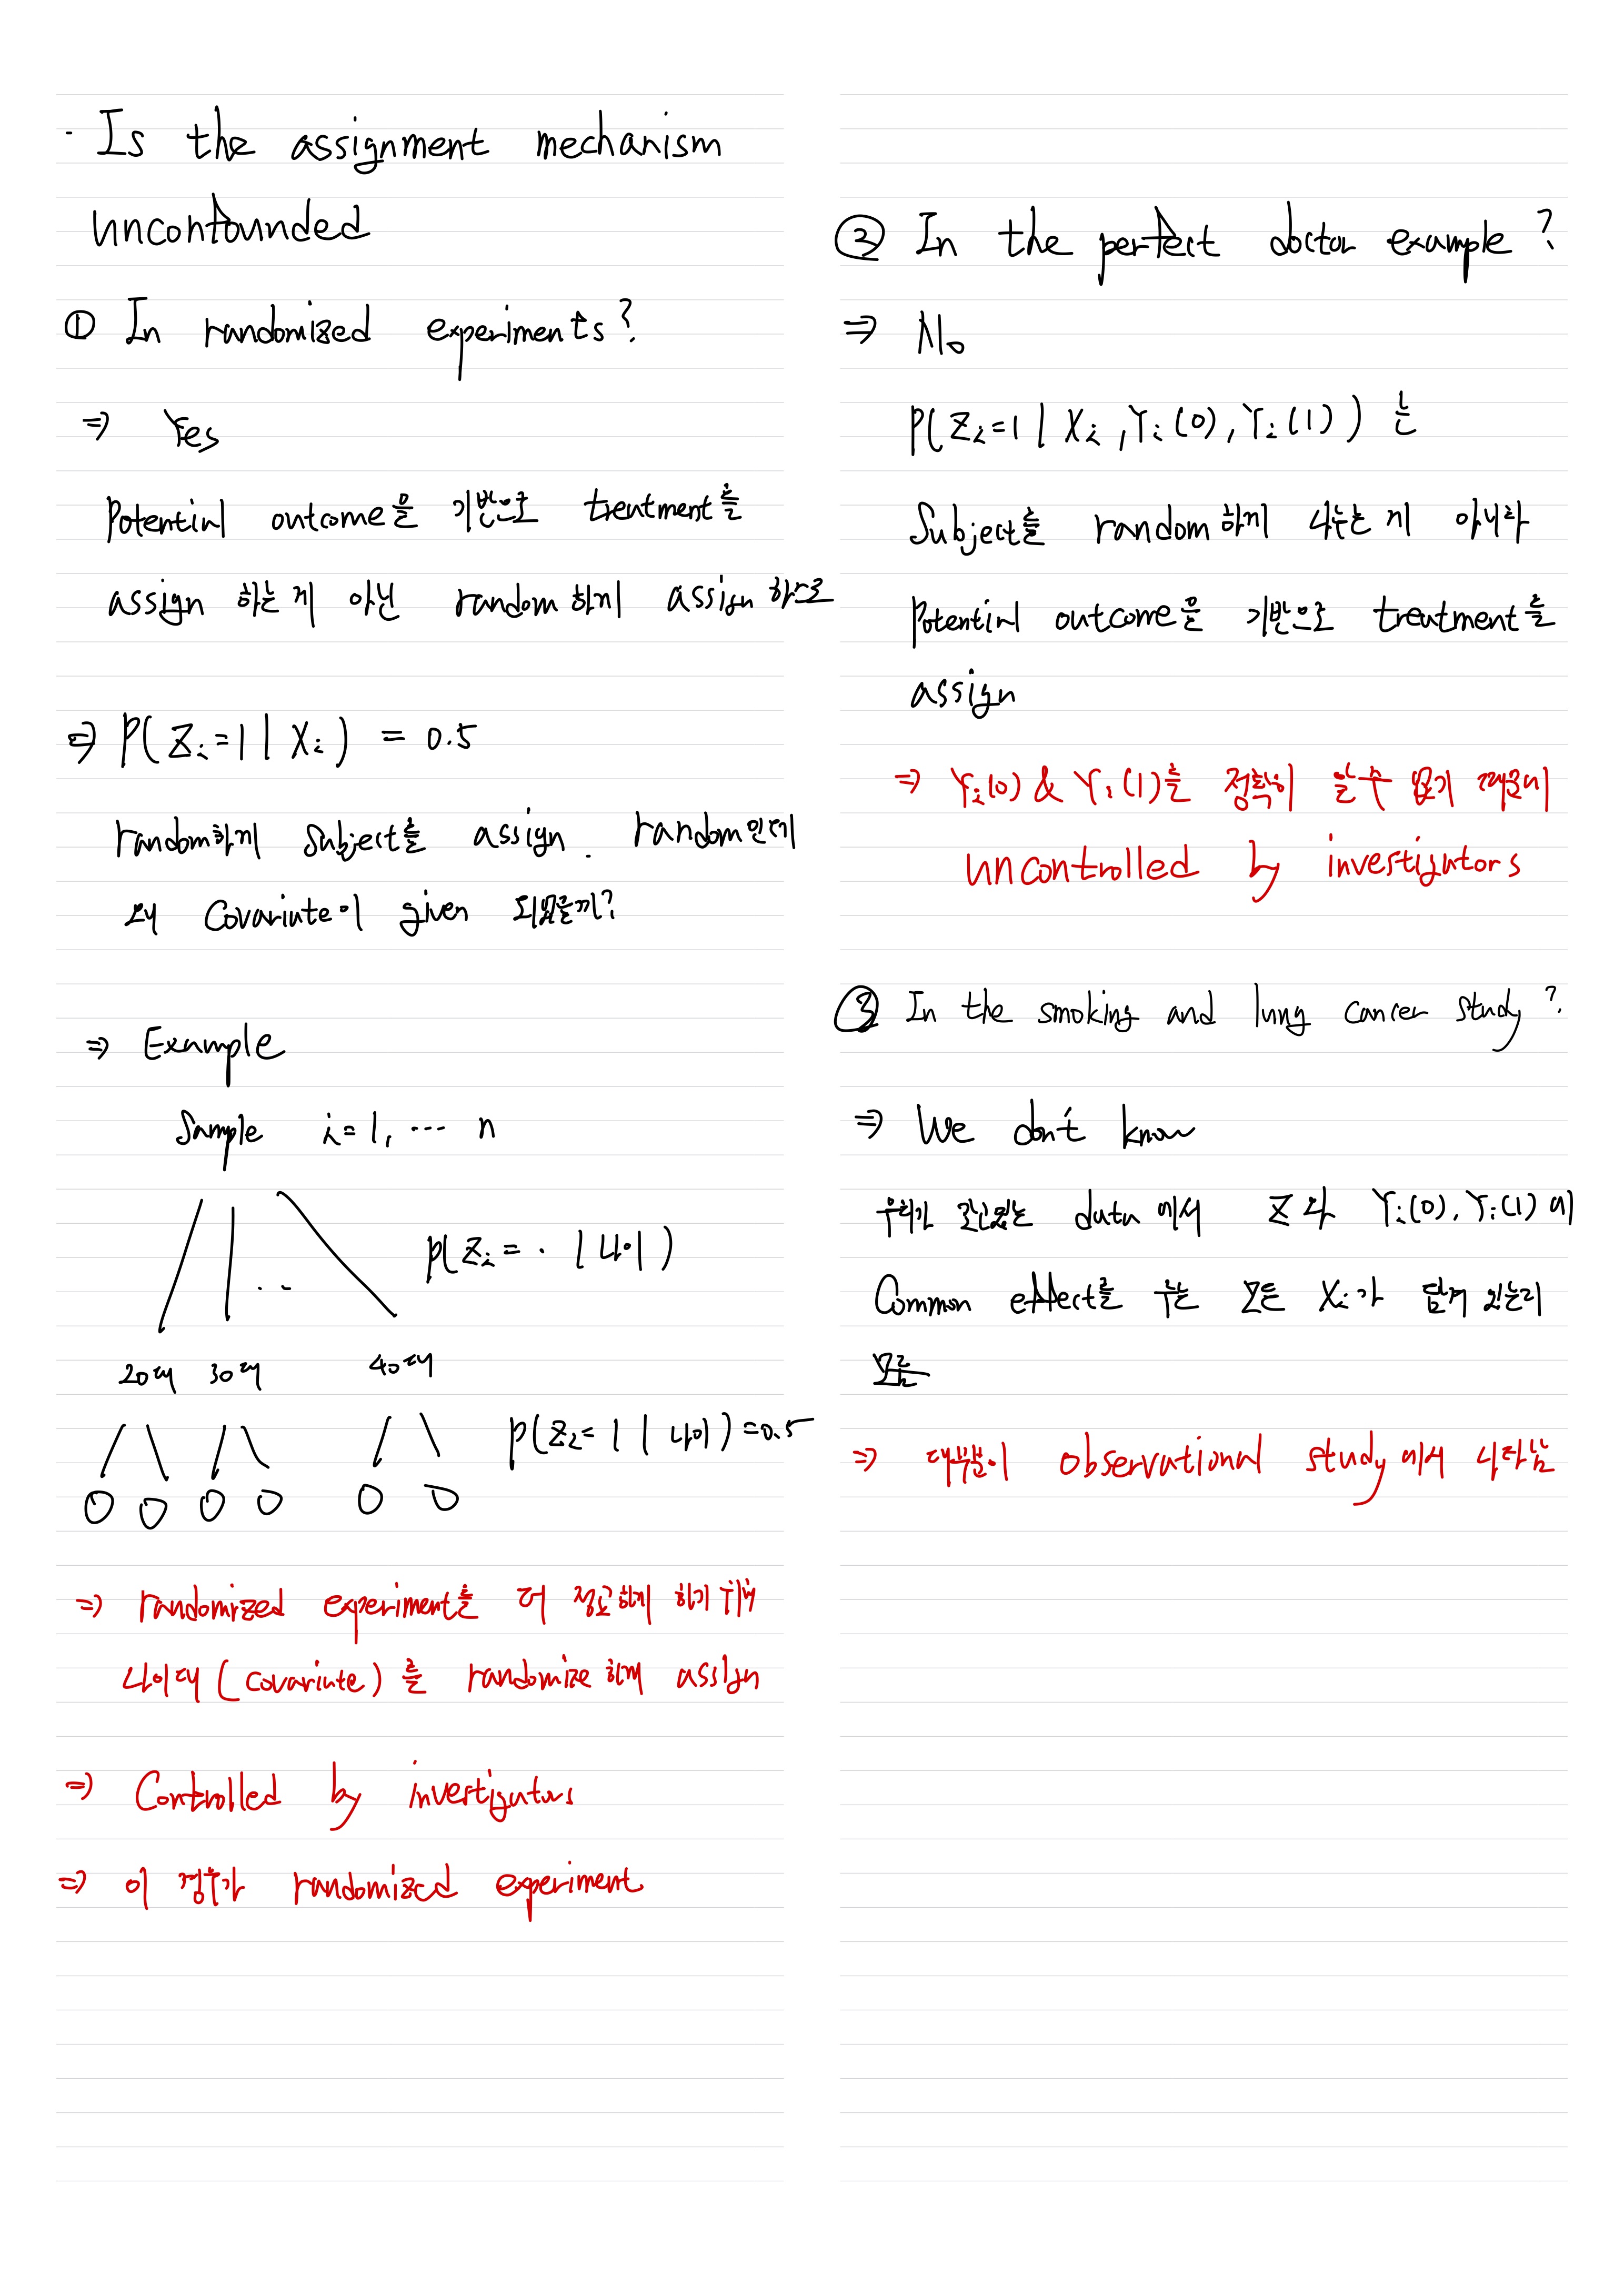 · Is the assignment mechanism
unconfounded
① In randomized experiments?
⇒ Yes
Potential outcome을 기반으로 treatment를
assign 하는 게 아닌 random 하게 assign 하므로
⇒ P(Zi=1 | Xi) = 0.5
random하게 Subject를 assign. random인데
왜 Covariate이 given 되었을까?
⇒ Example
Sample i=1, ... n
P(Zi= · | 나이)
...
20대 30대 40대
P(Zi=1 | 나이)=0.5
⇒ randomized experiment를 더 정교하게 하기 위해
나이대 (covariate) 를 randomize 하여 assign
⇒ Controlled by investigators
⇒ 이 경우가 randomized experiment
② In the perfect doctor example?
⇒ No
P(Zi=1 | Xi, Yi(0), Yi(1)) 는
Subject를 random 하게 나누는 게 아니라
Potential outcome을 기반으로 treatment를
assign
⇒ Yi(0) & Yi(1)를 정확히 알 수 없기 때문에
uncontrolled by investigators
③ In the smoking and lung cancer study?
⇒ We don't know
우리가 갖고있는 data 에서 Z 와 Yi(0), Yi(1) 에
Common effect를 주는 모든 Xi가 담겨 있는지
모름
⇒ 대부분이 observational study 에서 나타남